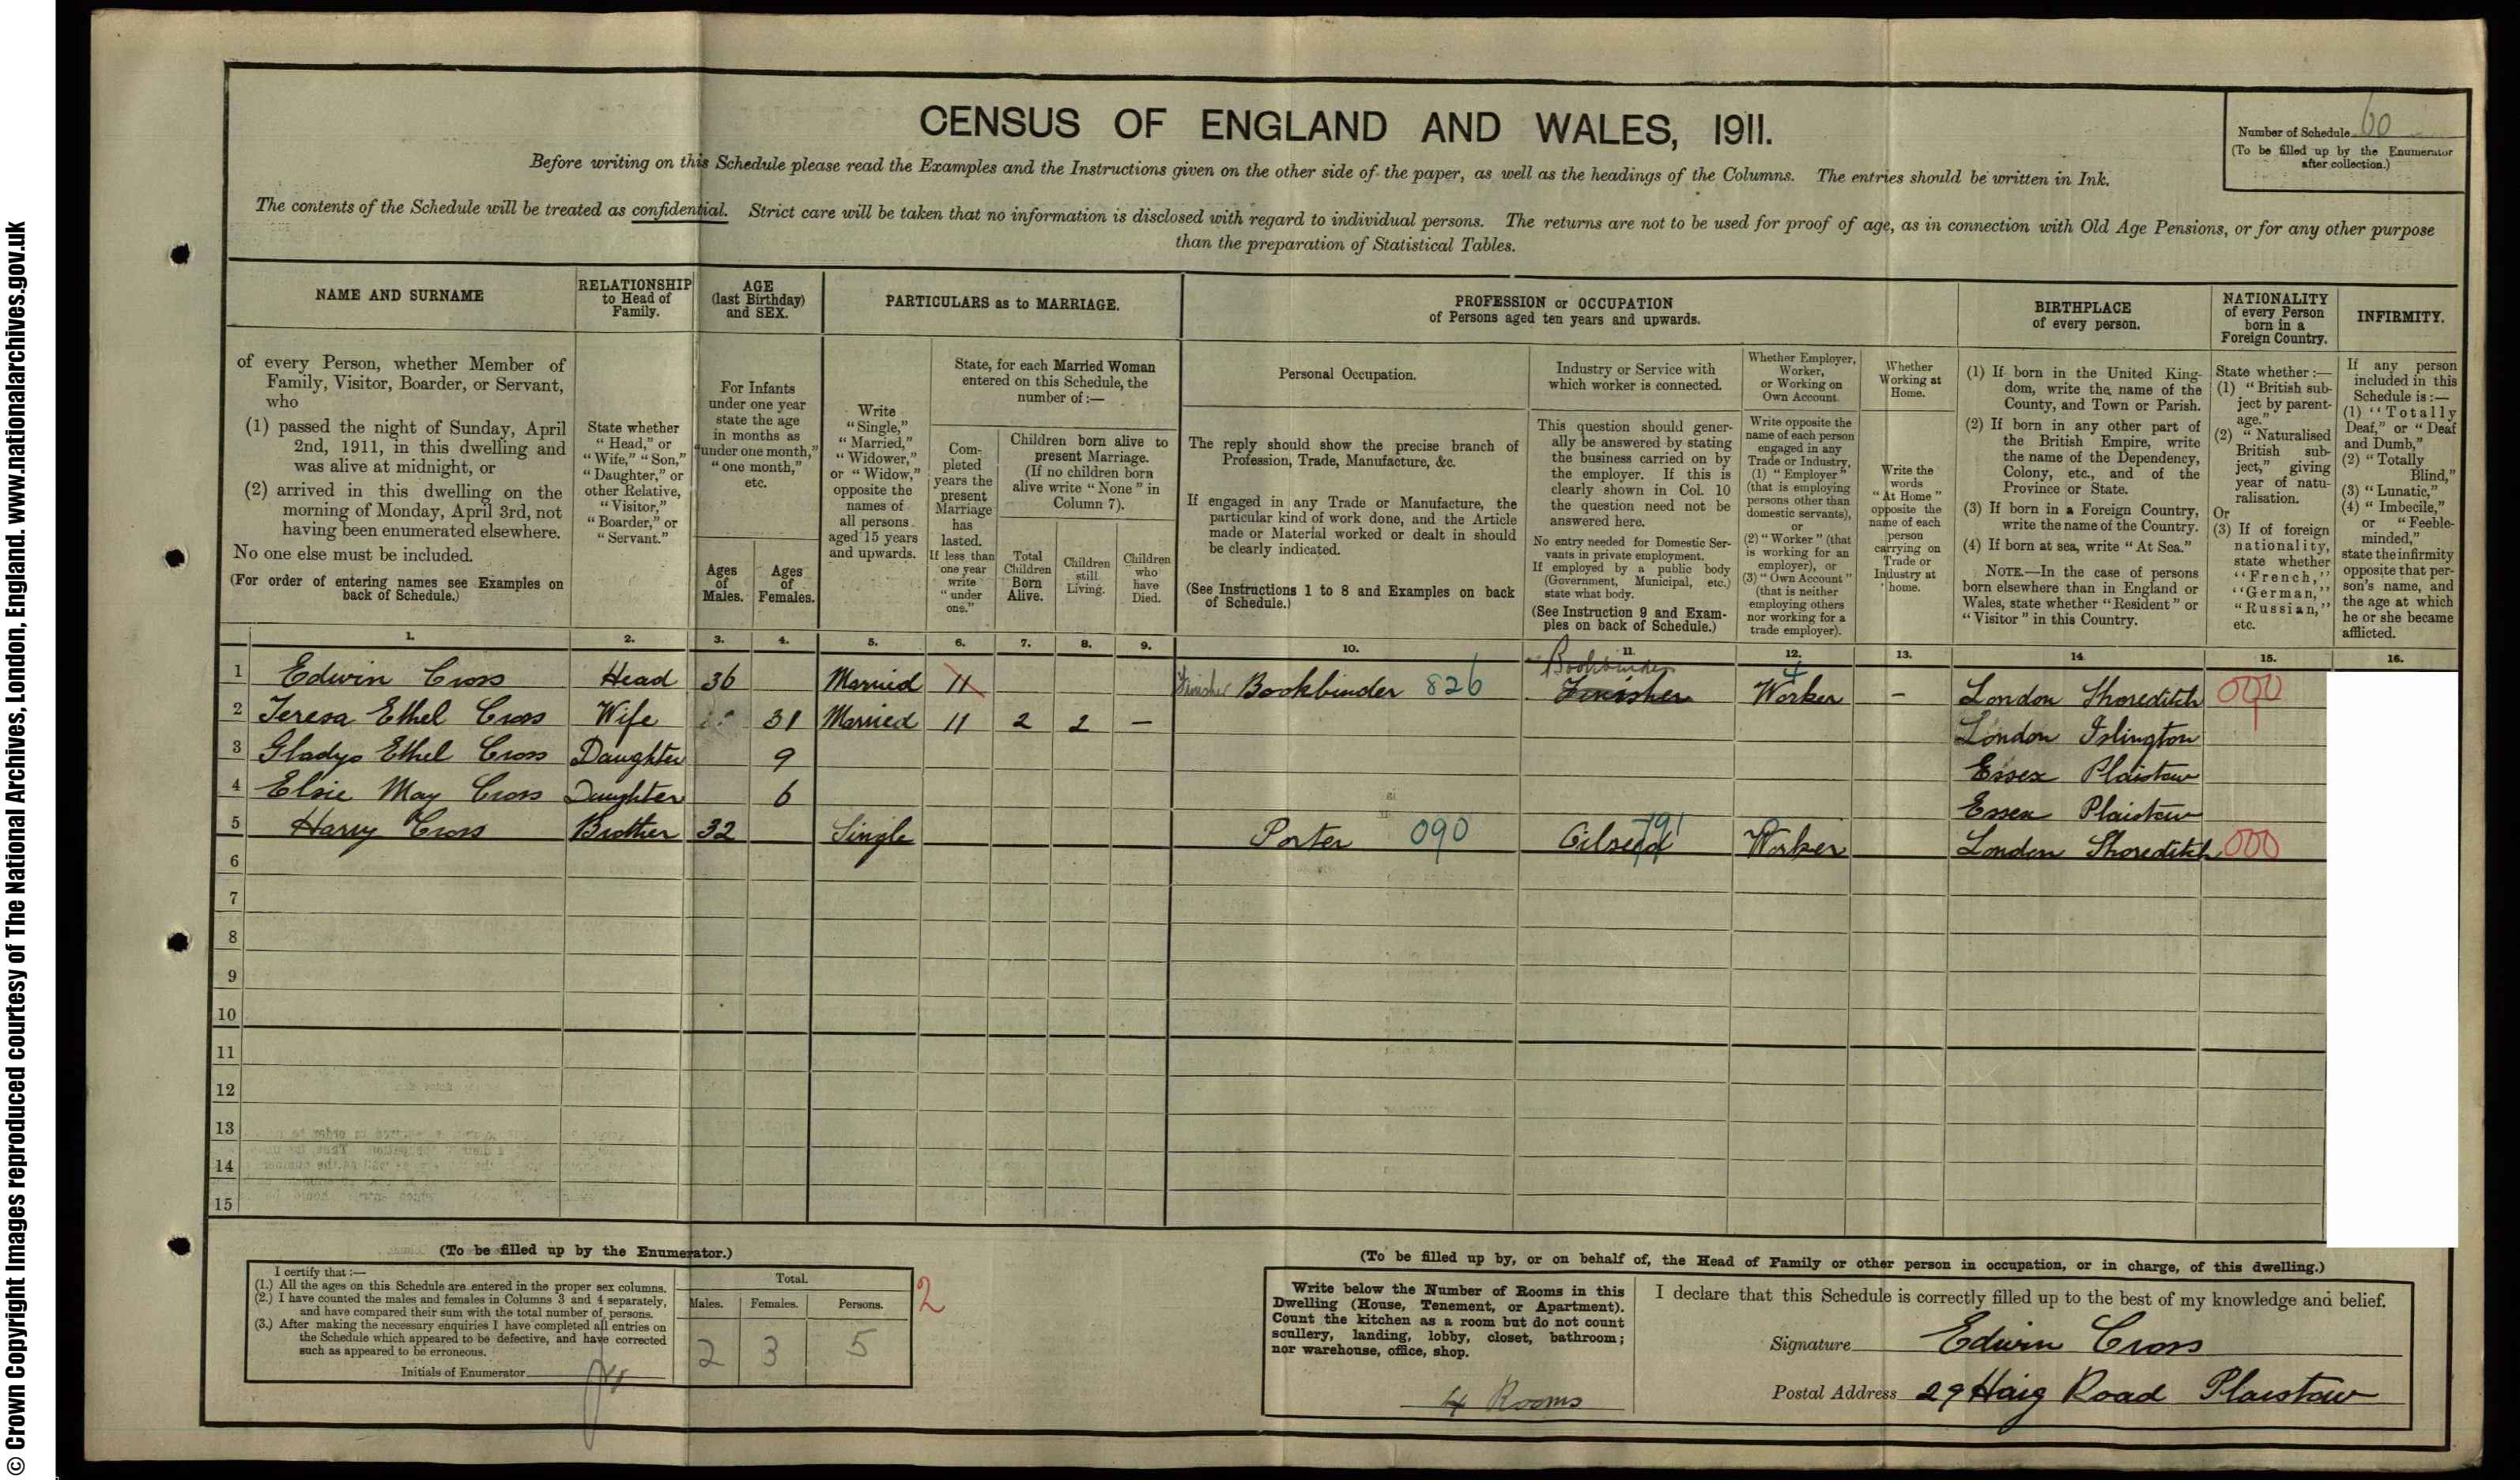 © Crown Copyright Images reproduced courtesy of The National Archives, London, England. www.nationalarchives.gov.uk
CENSUS OF ENGLAND AND WALES, 1911.
Number of Schedule 60
(To be filled up by the Enumerator
after collection.)
Before writing on this Schedule please read the Examples and the Instructions given on the other side of the paper, as well as the headings of the Columns. The entries should be written in Ink.
The contents of the Schedule will be treated as confidential. Strict care will be taken that no information is disclosed with regard to individual persons. The returns are not to be used for proof of age, as in connection with Old Age Pensions, or for any other purpose
than the preparation of Statistical Tables.
NAME AND SURNAME
of every Person, whether Member of
Family, Visitor, Boarder, or Servant,
who
(1) passed the night of Sunday, April
2nd, 1911, in this dwelling and
was alive at midnight, or
(2) arrived in this dwelling on the
morning of Monday, April 3rd, not
having been enumerated elsewhere.
No one else must be included.
(For order of entering names see Examples on
back of Schedule.)
RELATIONSHIP
to Head of
Family.
State whether
"Head," or
"Wife," "Son,"
"Daughter," or
other Relative,
"Visitor,"
"Boarder," or
"Servant."
AGE
(last Birthday)
and SEX.
For Infants
under one year
state the age
in months as
"under one month,"
"one month,"
etc.
Ages
of
Males.
Ages
of
Females.
PARTICULARS as to MARRIAGE.
Write
"Single,"
"Married,"
"Widower,"
or "Widow,"
opposite the
names of
all persons
aged 15 years
and upwards.
State, for each Married Woman
entered on this Schedule, the
number of:—
Com-
pleted
years the
present
Marriage
has
lasted.
If less than
one year
write
"under
one."
Children born alive to
present Marriage.
(If no children born
alive write "None" in
Column 7).
Total
Children
Born
Alive.
Children
still
Living.
Children
who
have
Died.
PROFESSION or OCCUPATION
of Persons aged ten years and upwards.
Personal Occupation.
The reply should show the precise branch of
Profession, Trade, Manufacture, &c.
If engaged in any Trade or Manufacture, the
particular kind of work done, and the Article
made or Material worked or dealt in should
be clearly indicated.
(See Instructions 1 to 8 and Examples on back
of Schedule.)
Industry or Service with
which worker is connected.
This question should gener-
ally be answered by stating
the business carried on by
the employer. If this is
clearly shown in Col. 10
the question need not be
answered here.
No entry needed for Domestic Ser-
vants in private employment.
If employed by a public body
(Government, Municipal, etc.)
state what body.
(See Instruction 9 and Exam-
ples on back of Schedule.)
Whether Employer,
Worker,
or Working on
Own Account.
Write opposite the
name of each person
engaged in any
Trade or Industry,
(1) "Employer"
(that is employing
persons other than
domestic servants),
or
(2) "Worker" (that
is working for an
employer), or
(3) "Own Account"
(that is neither
employing others
nor working for a
trade employer).
Whether
Working at
Home.
Write the
words
"At Home"
opposite the
name of each
person
carrying on
Trade or
Industry at
home.
BIRTHPLACE
of every person.
(1) If born in the United King-
dom, write the name of the
County, and Town or Parish.
(2) If born in any other part of
the British Empire, write
the name of the Dependency,
Colony, etc., and of the
Province or State.
(3) If born in a Foreign Country,
write the name of the Country.
(4) If born at sea, write "At Sea."
NOTE.—In the case of persons
born elsewhere than in England or
Wales, state whether "Resident" or
"Visitor" in this Country.
NATIONALITY
of every Person
born in a
Foreign Country.
State whether:—
(1) "British sub-
ject by parent-
age."
(2) "Naturalised
British sub-
ject," giving
year of natu-
ralisation.
Or
(3) If of foreign
nationality,
state whether
"French,"
"German,"
"Russian,"
etc.
INFIRMITY.
If any person
included in this
Schedule is:—
(1) "Totally
Deaf," or "Deaf
and Dumb,"
(2) "Totally
Blind,"
(3) "Lunatic,"
(4) "Imbecile,"
or "Feeble-
minded,"
state the infirmity
opposite that per-
son's name, and
the age at which
he or she became
afflicted.
1. 2. 3. 4. 5. 6. 7. 8. 9. 10. 11. 12. 13. 14. 15. 16.
Bookbinder 4
1 Edwin Cross Head 36 Married 11 Finisher Bookbinder 826 Finisher Worker – London Shoreditch 000
2 Teresa Ethel Cross Wife 31 Married 11 2 2 — London Islington
3 Gladys Ethel Cross Daughter 9 Essex Plaistow
4 Elsie May Cross Daughter 6 Essex Plaistow
5 Harry Cross Brother 32 Single Porter 090 Worker London Shoreditch 000
6
7
8
9
10
11
12
13
14
15
(To be filled up by the Enumerator.)
I certify that:—
(1.) All the ages on this Schedule are entered in the proper sex columns.
(2.) I have counted the males and females in Columns 3 and 4 separately,
and have compared their sum with the total number of persons.
(3.) After making the necessary enquiries I have completed all entries on
the Schedule which appeared to be defective, and have corrected
such as appeared to be erroneous.
Initials of Enumerator
Total.
Males. Females. Persons.
2 3 5
2
(To be filled up by, or on behalf of, the Head of Family or other person in occupation, or in charge, of this dwelling.)
Write below the Number of Rooms in this
Dwelling (House, Tenement, or Apartment).
Count the kitchen as a room but do not count
scullery, landing, lobby, closet, bathroom;
nor warehouse, office, shop.
4 Rooms
I declare that this Schedule is correctly filled up to the best of my knowledge and belief.
Signature Edwin Cross
Postal Address 29 Haig Road Plaistow